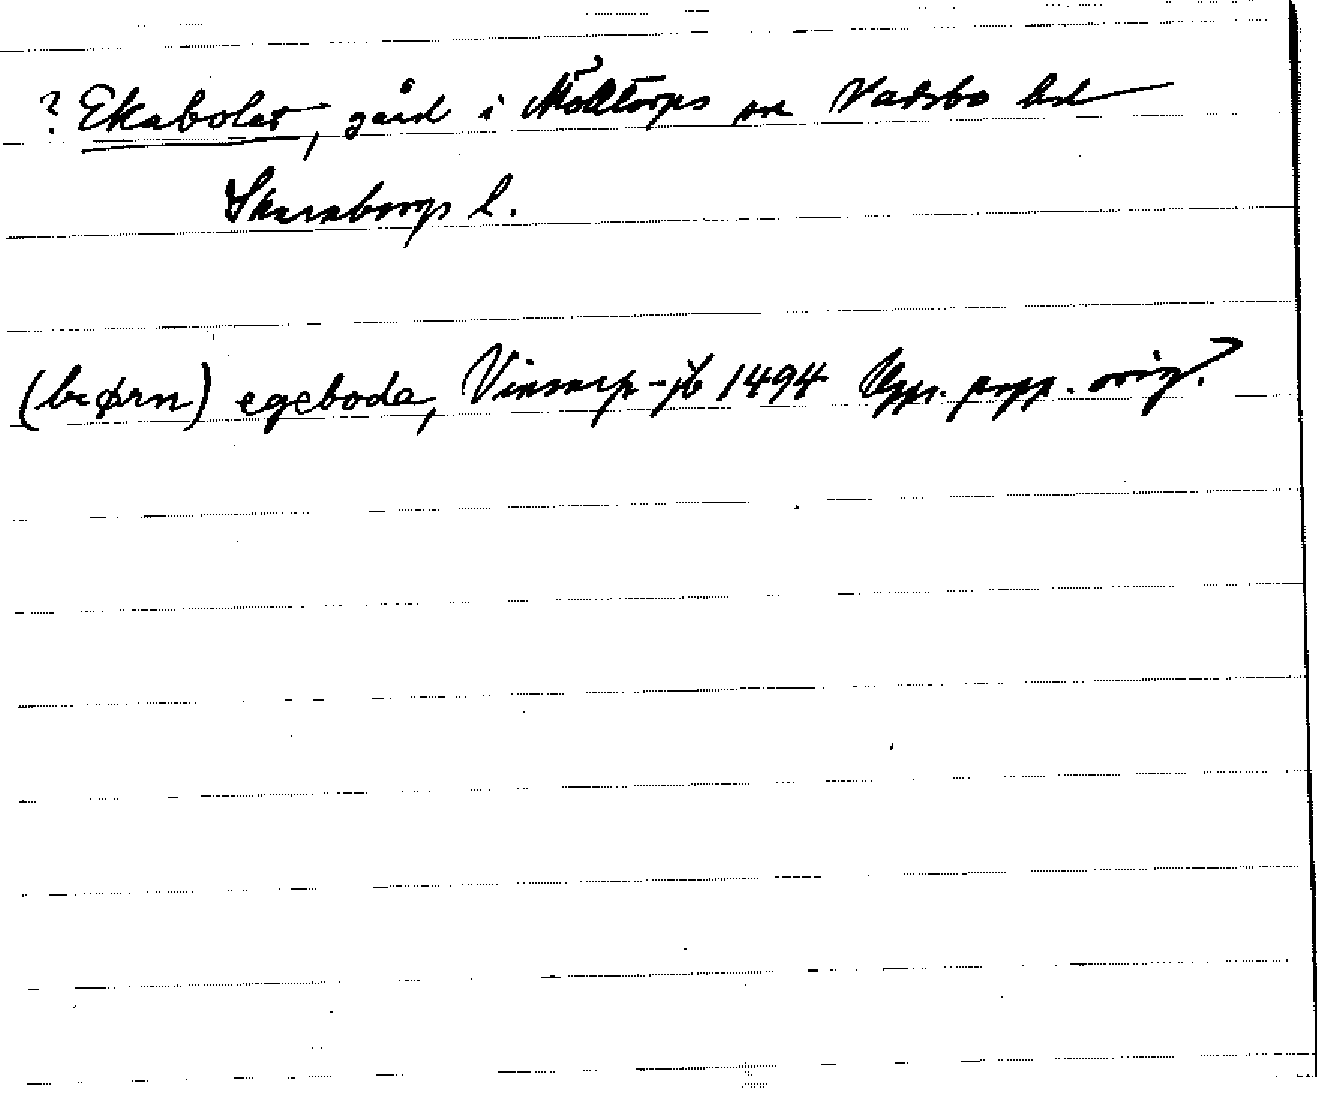 ? Ekabolet, gård i Möltorps sn Vadsbo hd
Skaraborgs l.
(biørn) egeboda, Vinsarp-jb 1494 Upps. papp. orig.